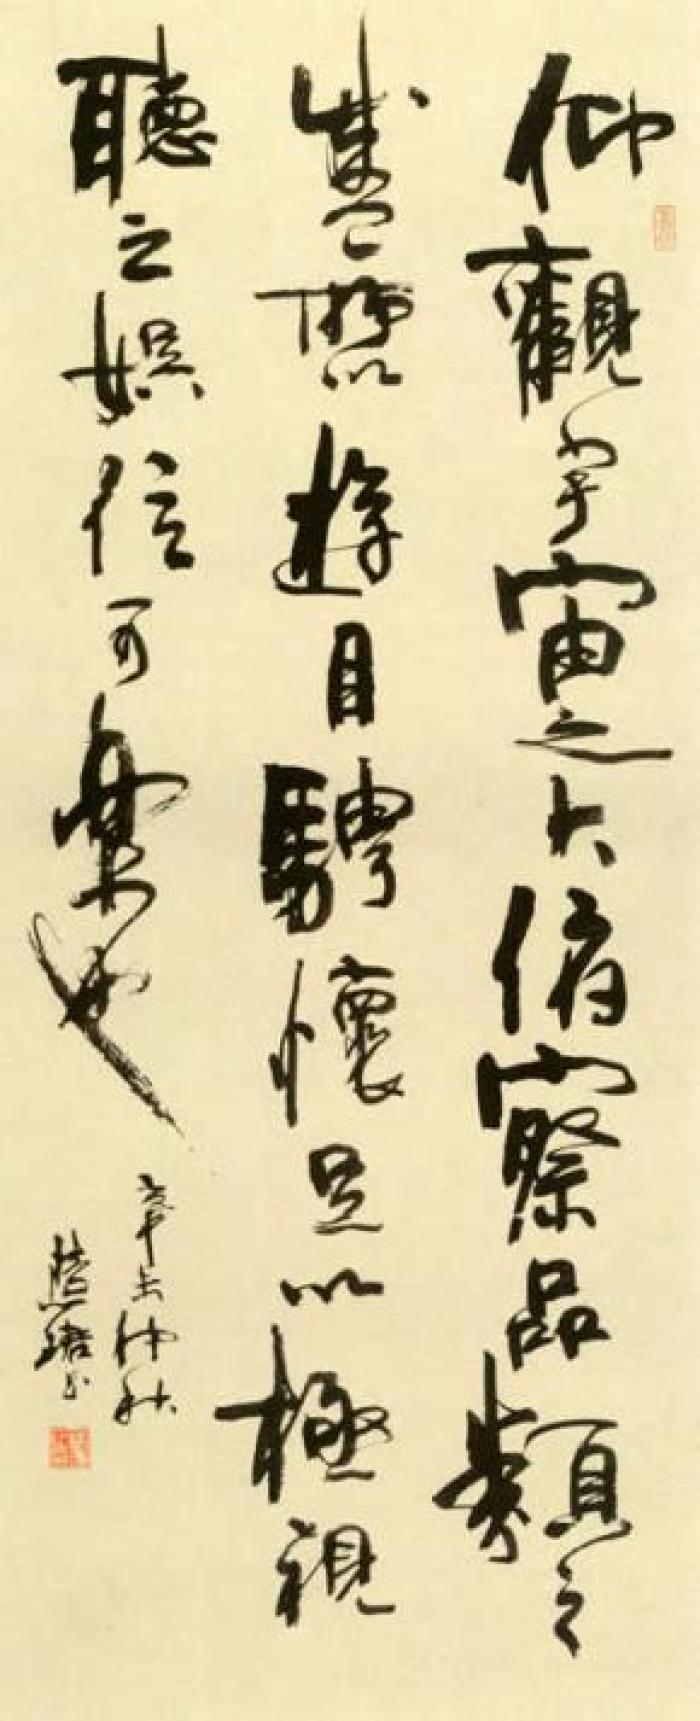 仰觀宇宙之大俯察品類之
盛所以遊目騁懷足以極視
聽之娛信可樂也
辛仲秋
慧珺书